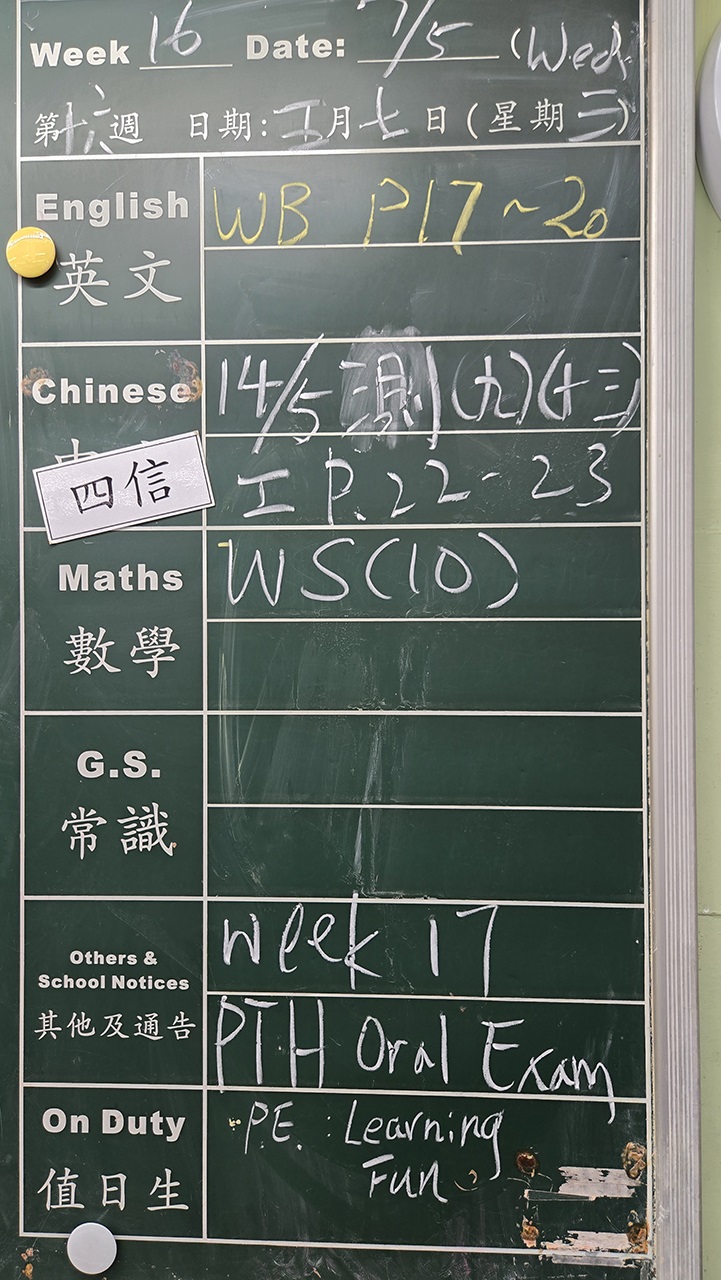 Week 16 Date: 7/5 (Wed
第十六週 日期: 五月七日(星期三)
English WB P17~20
英文
Chinese 14/5 測(九)(十三)
四信 工 P.22-23
Maths WS(10)
數學
G.S.
常識
Others & School Notices Week 17
其他及通告 PTH Oral Exam
On Duty PE. : Learning
值日生 Fun